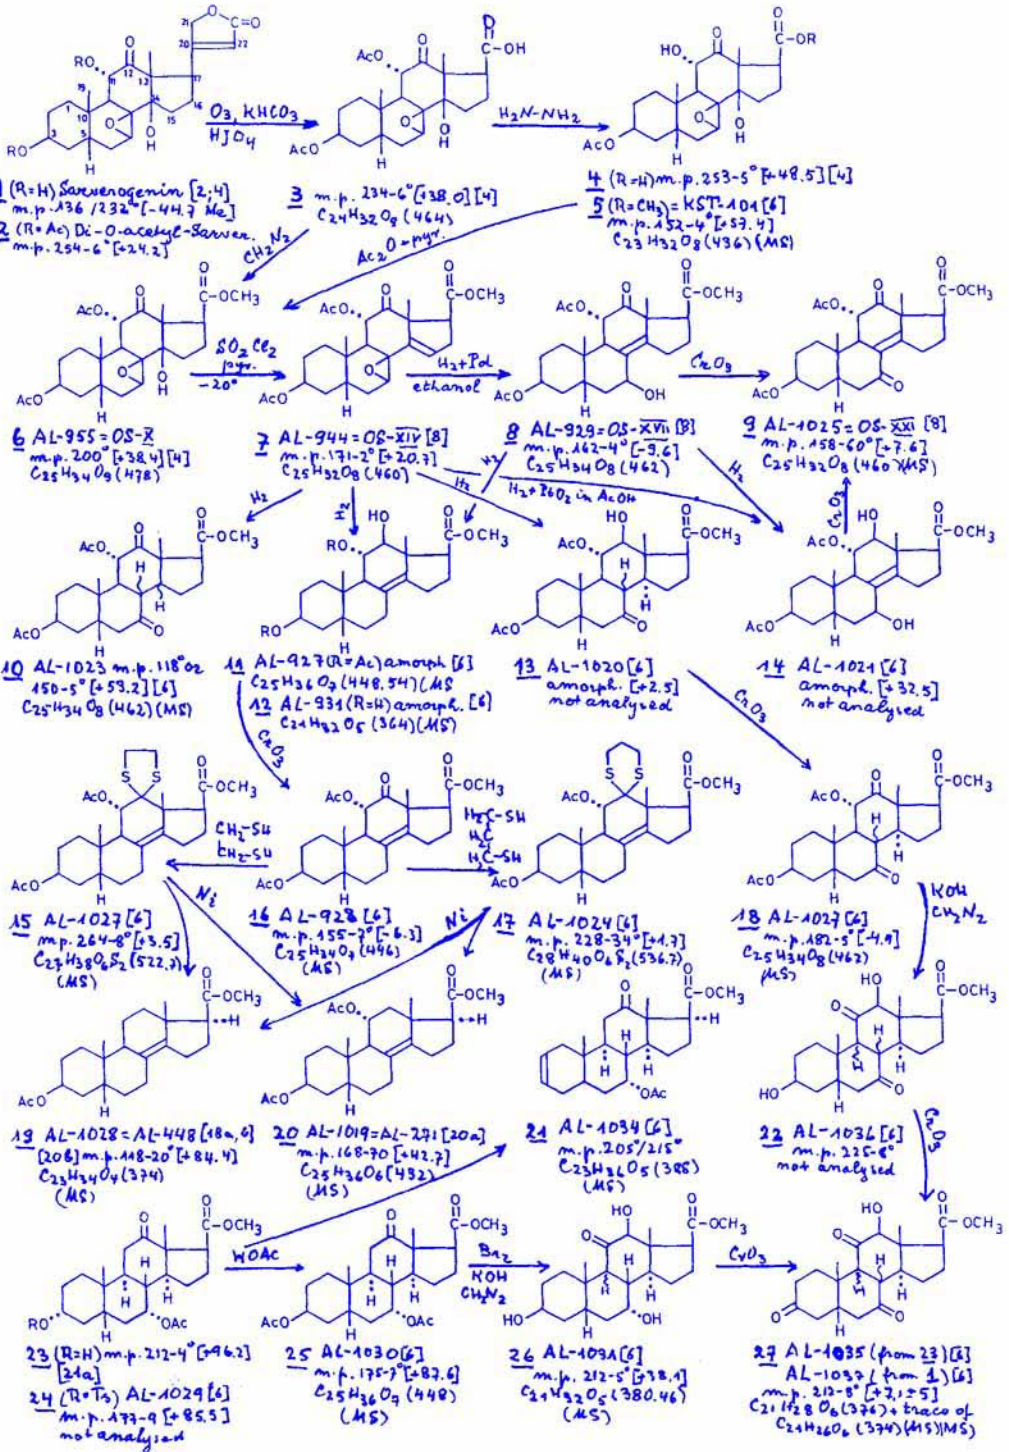 O₃, KHCO₃
HJO₄
H₂N-NH₂
1 (R=H) Sarverogenin [2;4]
m.p. 136/232° [-44.7 Me]
2 (R=Ac) Di-O-acetyl-Sarver.
m.p. 254-6° [+24.2]
3 m.p. 234-6° [+38.0] [4]
C24H32O9 (464)
4 (R=H) m.p. 253-5° [+48.5] [4]
5 (R=CH3) = KST-101 [6]
m.p. 152-4° [+57.4]
C23H32O8 (436) (MS)
CH2N2
Ac2O-pyr.
SO2Cl2
pyr.
-20°
H2+Pd
ethanol
CrO3
6 AL-955 = OS-X
m.p. 200° [+38.4] [4]
C25H34O9 (478)
7 AL-944 = OS-XIV [8]
m.p. 171-2° [+20.7]
C25H32O8 (460)
8 AL-929 = OS-XVII [8]
m.p. 162-4° [-9.6]
C25H34O8 (462)
9 AL-1025 = OS-XXI [8]
m.p. 158-60° [+7.6]
C25H32O8 (460) (MS)
H2
H2
H2
H2
H2+PtO2 in AcOH
H2
CrO3
10 AL-1023 m.p. 118° oz
150-5° [+53.2] [6]
C25H34O8 (462) (MS)
11 AL-927 (R=Ac) amorph [6]
C25H36O7 (448,54) (MS
12 AL-931 (R=H) amorph. [6]
C21H32O5 (364) (MS)
13 AL-1020 [6]
amorph. [+2.5]
not analysed
14 AL-1021 [6]
amorph. [+32.5]
not analysed
CrO3
CrO3
CH2-SH
CH2-SH
H2C-SH
H2C
H2C-SH
Ni
Ni
KOH
CH2N2
15 AL-1027 [6]
m.p. 264-8° [+3.5]
C27H38O6S2 (522.7)
(MS)
16 AL-928 [6]
m.p. 155-7° [-6.3]
C25H34O7 (446)
(MS)
17 AL-1024 [6]
m.p. 228-34° [+1.7]
C28H40O6S2 (536.7)
(MS)
18 AL-1027 [6]
m.p. 182-5° [-4.9]
C25H34O8 (462)
(MS)
19 AL-1028 = AL-448 [18a, 6]
[20b] m.p. 118-20° [+84.4]
C23H34O4 (374)
(MS)
20 AL-1019 = AL-271 [20a]
m.p. 168-70 [+42.7]
C25H36O6 (432)
(MS)
21 AL-1034 [6]
m.p. 205/215°
C23H36O5 (388)
(MS)
22 AL-1036 [6]
m.p. 225-8°
not analysed
CrO3
HOAc
Br2
KOH
CH2N2
CrO3
23 (R=H) m.p. 212-4° [+96.2]
[21a]
24 (R=Ts) AL-1029 [6]
m.p. 177-9 [+85.3]
not analysed
25 AL-1030 [6]
m.p. 175-7° [+87.6]
C25H36O7 (448)
(MS)
26 AL-1031 [6]
m.p. 212-5° [+38.1]
C21H32O5 (380.46)
(MS)
27 AL-1035 (from 23) [6]
AL-1037 (from 1) [6]
m.p. 212-8° [+7,1±5]
C21H28O6 (376) + traco of
C21H26O6 (374) (MS) (MS)